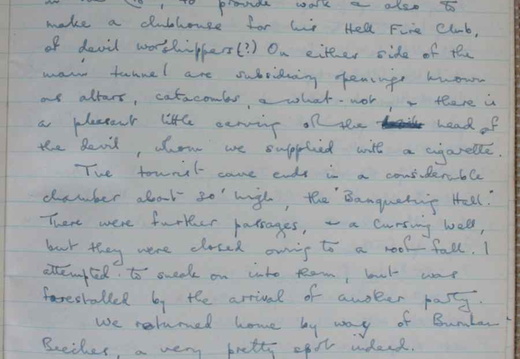 to provide work & also to
make a clubhouse for his Hell Fire Club,
of devil worshippers(?) On either side of the
main tunnel are subsidiary openings known
as altars, catacombs, & what-not, & there is
a pleasant little carving of the head of
the devil, whom we supplied with a cigarette.
The tourist cave ends in a considerable
chamber about 30' high, the "Banqueting Hall."
There were further passages, & a Cursing Well,
but they were closed owing to a roof fall. I
attempted to sneak on into them, but was
forestalled by the arrival of another party.
We returned home by way of Burnham
Beeches, a very pretty spot indeed.